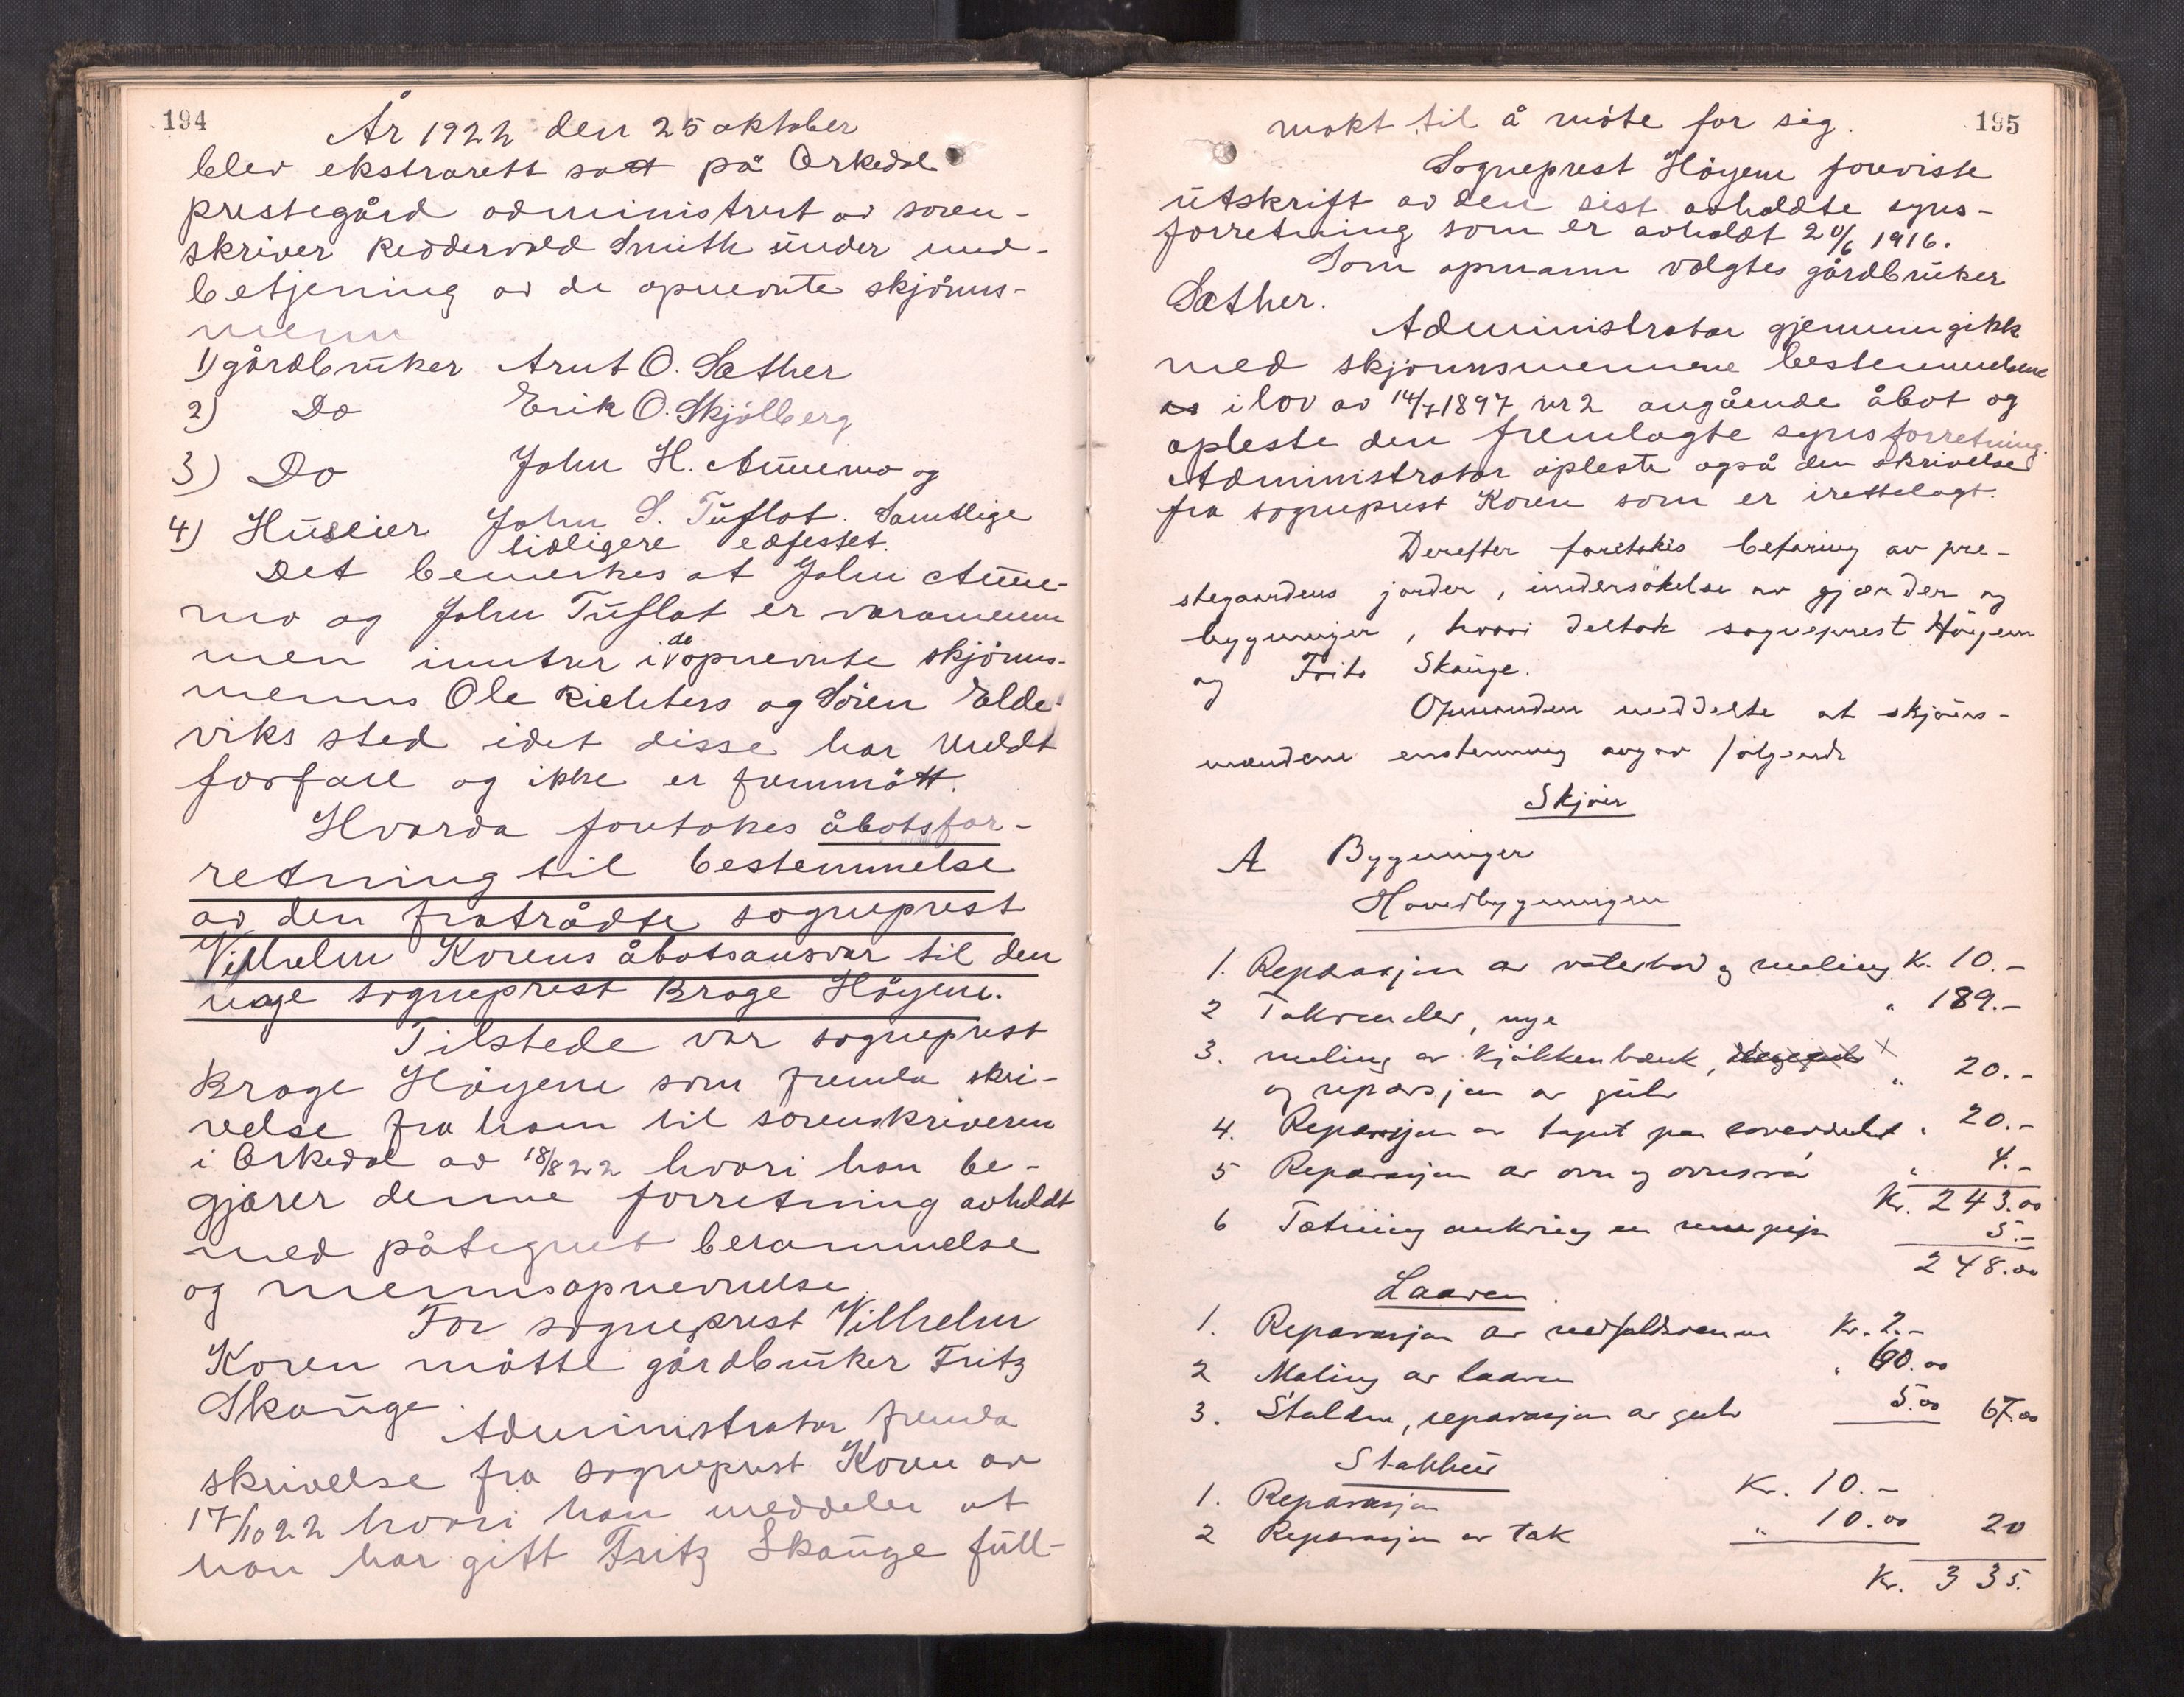 194
År 1922 den 25 oktober
blev ekstrarett satt på Orkedal
prestegård administrert av soren-
skriver Reddervold Smith under med-
betjening av de opnevnte skjönns-
menn
1) gårdbruker Arnt O. Sæther
2) Do Erik O. Skjölberg
3) Do John H. Aunemo og
4) Huseier John S. Tuflot. Samtlige
tidligere edfestet.
Det bemerkes at John Aune-
mo og John Tuflat er varamenn
men inntrer i de opnevnte skjönns-
menns Ole Richters og Sören Elde-
viks sted idet disse har meldt
forfall og ikke er fremmött.
Hvorda foretokes åbotsfor-
retning til bestemmelse
av den fratrådte sogneprest
Vilhelm Korens åbotsansvar til den
nye sogneprest Brage Höyem.
Tilstede var sogneprest
Brage Höyem som fremla skri-
velse fra ham til sorenskriveren
i Orkedal av 18/8 22 hvori han be-
gjærer denne forretning avholdt
med påtegnet berammelse
og mennsopnevnelse.
For sogneprest Vilhelm
Koren mötte gårdbruker Fritz
Skauge.
Administrator fremla
skrivelse fra sogneprest Koren av
17/10 22 hvori han meddeler at
han har gitt Fritz Skauge full-
195
makt til å möte for sig.
Sogneprest Höyem foreviste
utskrift av den sist avholdte syns-
forretning som er avholdt 20/6 1916.
Som opmann valgtes gårdbruker
Sæther.
Administrator gjennemgikk
med skjönnsmennene bestemmelsene
i lov av 14/7 1897 nr 2 angående åbot og
opleste den fremlagte synsforretning.
Administrator opleste også den skrivelse
fra sogneprest Koren som er irettelagt.
Derefter foretokes befaring av pre-
stegaardens jorder, undersökelse av gjærder og
bygninger, hvori deltok sogneprest Höyem
og Fritz Skauge.
Opmanden meddelte at skjöns-
mændene enstemmig avgav følgende
Skjön
A Bygninger
Hovedbygningen
1. Reparasjon av vaterbord og maling K. 10.-
2 Takrender, nye " 189.-
3. maling av kjökkenbænk,
og reparsjon av gulv " 20.-
4. Reparasjon av tapet paa soveværelset " 20.-
5 Reparasjon av ovn og ovnsrör " 4.-
Kr. 243.00
6 Tætning omkring en pipe 5.-
248.00
Laaven
1. Reparasjon av nedfaldsrenne Kr. 2.-
2 Maling av laaven " 60.00
3. Stalden, reparasjon av gulv 5.00 67.00
Stabbur
1. Reparasjon Kr. 10.-
2 Reparasjon av tak " 10.00 20
Kr. 335.